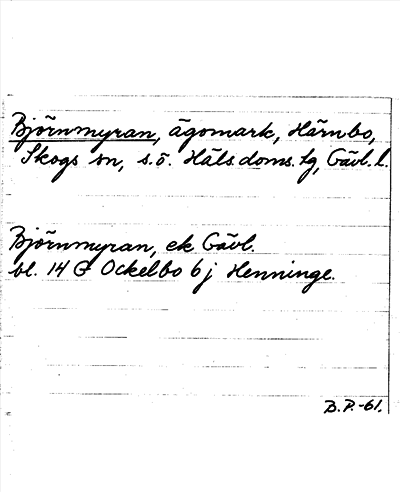 Björnmyran, ägomark, Härnbo,
Skogs sn, s.ö. Häls. doms. tg, Gävl. l.
Björnmyran, ek Gävl.
bl. 14 G Ockelbo 6 j Henninge.
B.P.-61.